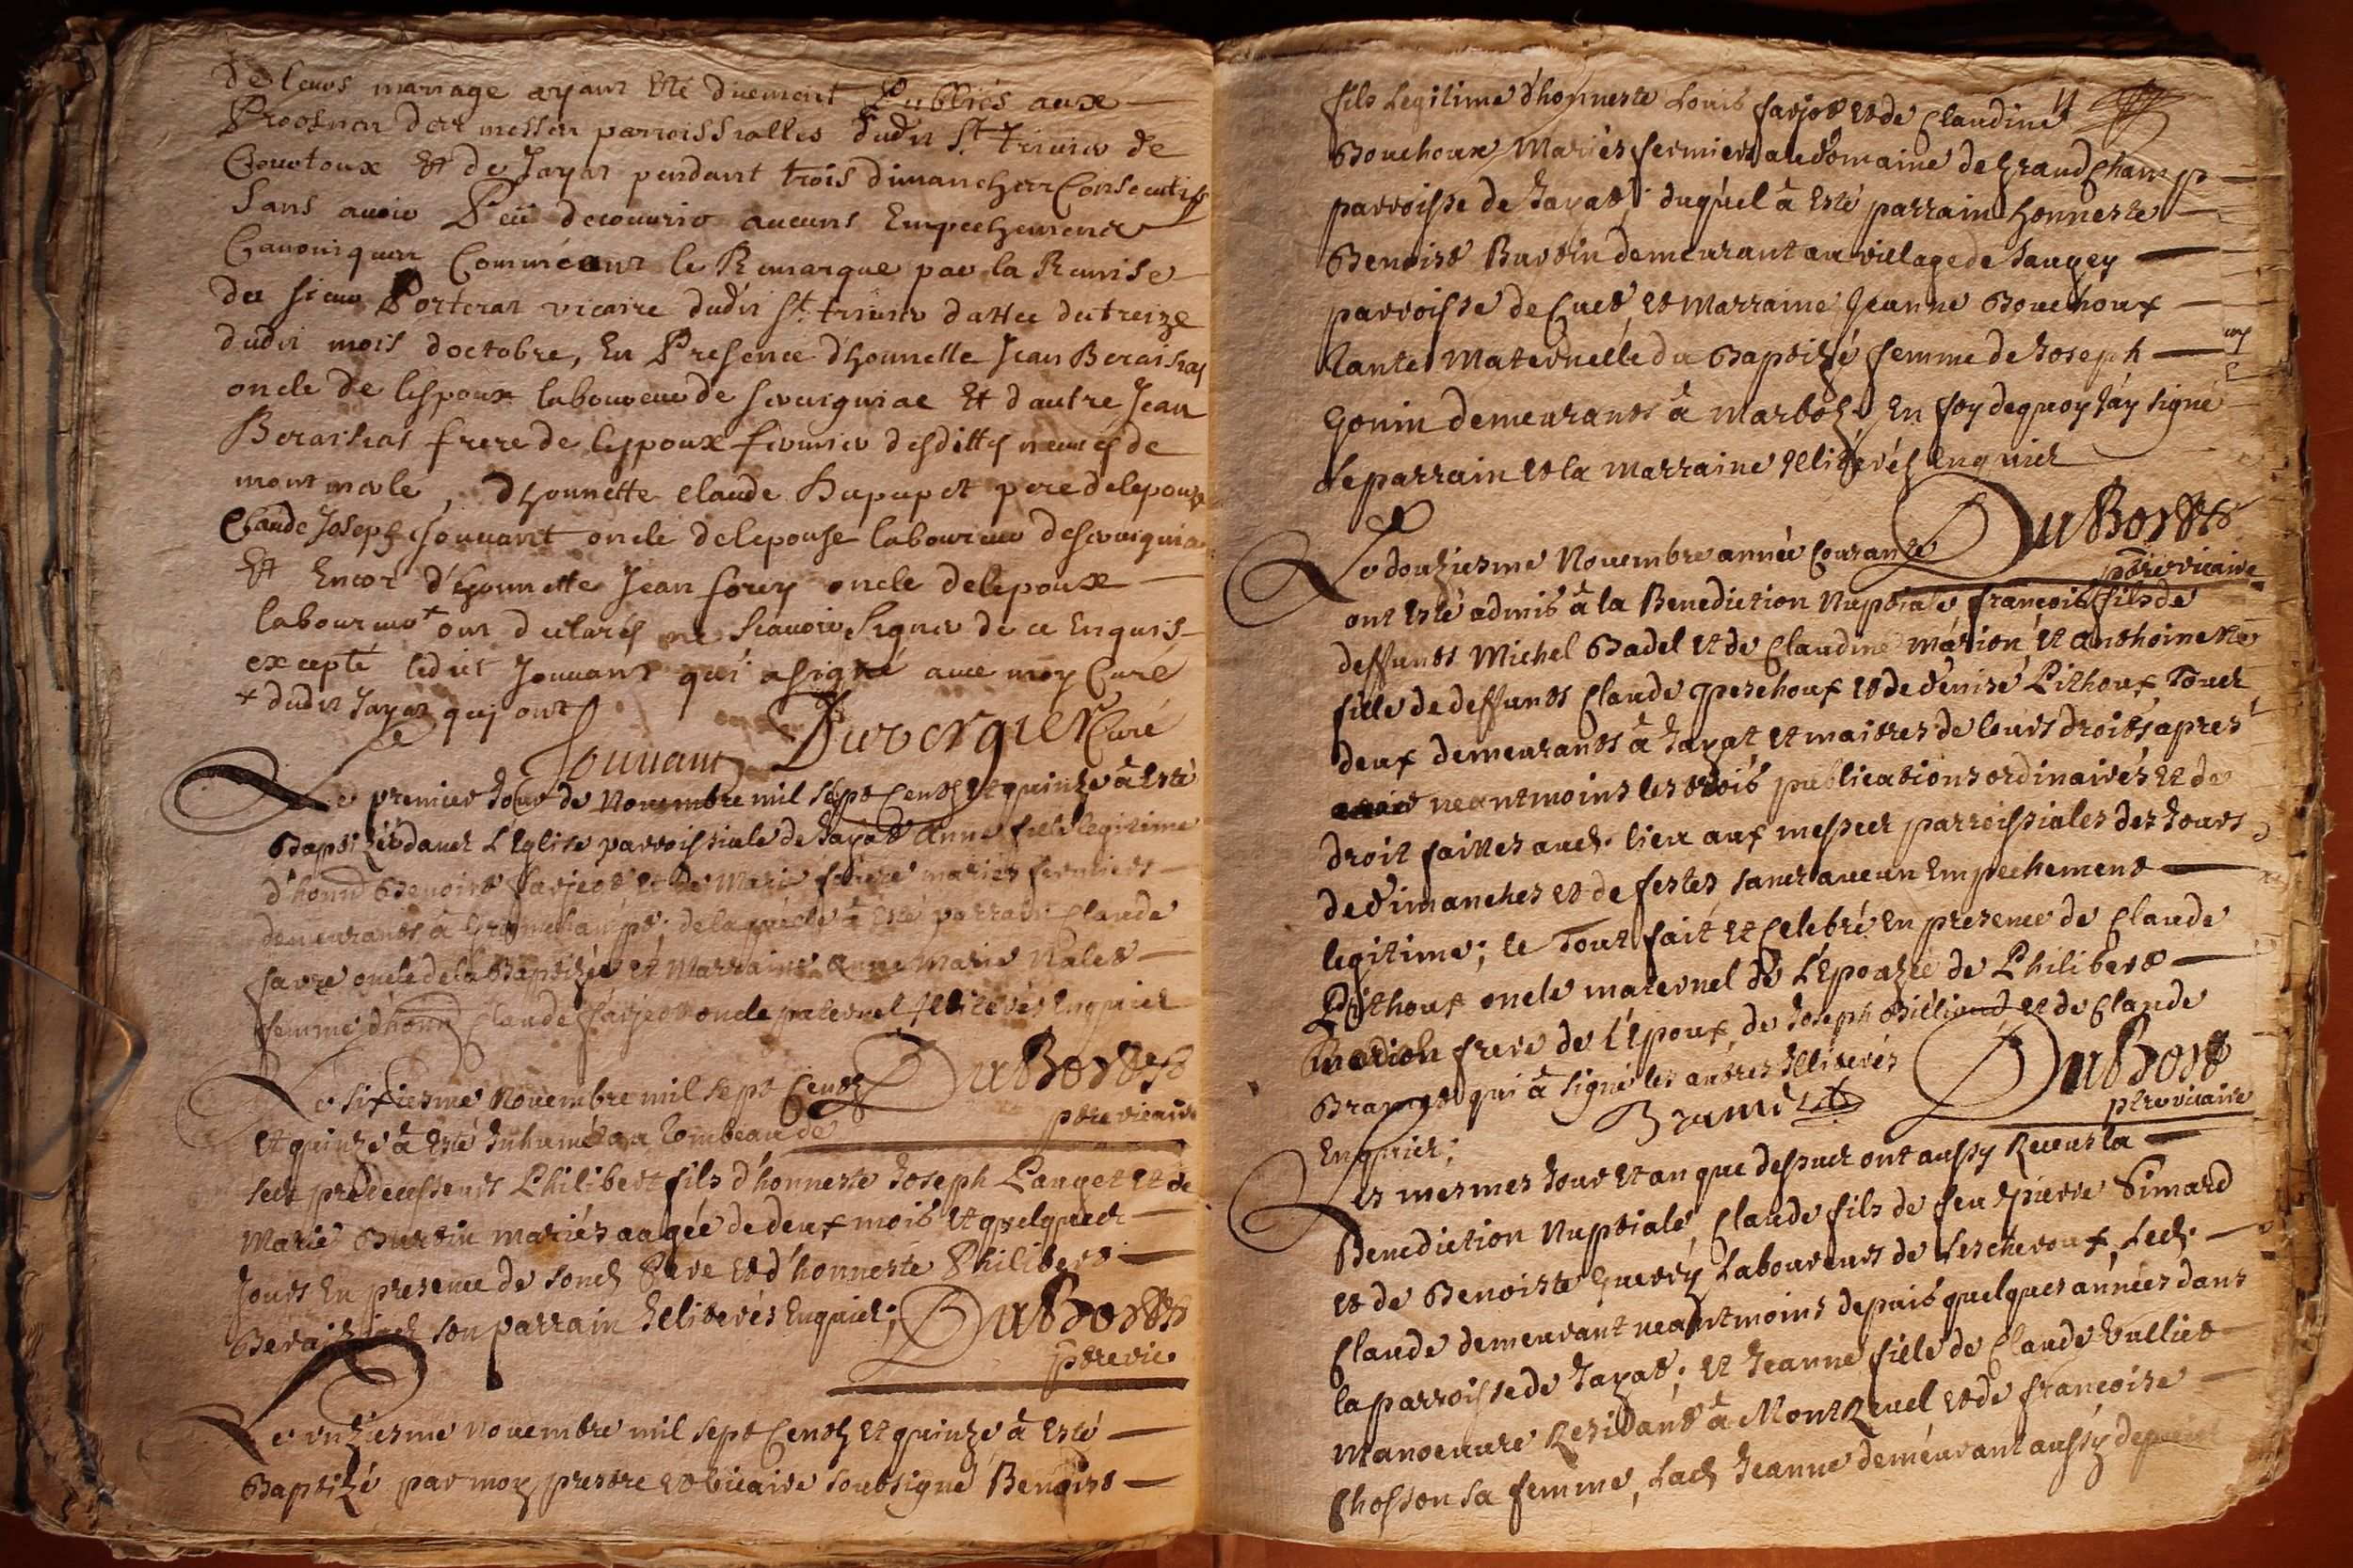 de leurs mariage ayant Eté duement Publiés aux
Prosnes des messes parroissialles dudit St. Trivier de
Courtoux Et de Jayat pendant trois dimanches Consecutifs
Sans avoir Peü decouvrir aucuns Empechemens
Canoniques Comme le Remarque par la Remise
du sieur Porteran vicaire dudit St. trivier dattee du treize
dudit mois doctobre, En Presence dhonnette Jean
oncle de lespoux laboureur de Et d'autre Jean
frere de lespoux desdittes de
, dhonnette Claude pere delepouse
Claude Joseph Jouvant oncle delepouse laboureur
Et Encor d'honnette Jean oncle delepoux
laboureur + ont declarés ne Scavoir Signer de ce Enquis
excepté ledit Jouvant qui a signé avec moy Curé
+ dudit Jayat qui ont
Jouvant Duvergier Curé
Le premier Jour de Novembre mil sept Cents et quinze à Esté
Baptizée dans L'Eglise parroissiale de Jayat Anne fille legitime
d'honn Benoist Farjot et de Marie mariés fermiers
demeurants à de laquelle à Esté parrain Claude
favre oncle de la Baptizée, et Marraine Anne Marie
femme d'honn Claude Farjot oncle paternel Illiterés Enquiet
DuBost
Le sixiesme Novembre mil sept Cents
ptre vicaire
et quinze à Esté Inhumé au Tombeau de
ses predecesseurs Philibert fils d'honneste Joseph Pauget et de
Marie Burtin mariés aagée de deux mois et quelques
Jours En presence de sond. Pere et d'honneste Philibert
son parrain Illiterés Enquiet;
DuBost
ptre vic
Le unziesme Novembre mil sept Cents et quinze à Esté
Baptizé par moy prestre et vicaire soubsigné Benoist
fils Legitime d'honneste Louis farjot et de Claudine
Bouchoux Mariés fermiers au domaine de grand Champ
parroisse de Jayat; duquel à Esté parrain honneste
Benoist Burtin demeurant au village de Jaugey
parroisse de Cuet, et Marraine Jeanne Bouchoux
Tante Maternelle du Baptizé femme de Joseph
Gonin demeurants à Marboz; En foy dequoy J'ay signé
Le parrain et la Marraine Illiterés Enquiet
DuBost
ptre vicaire
Le douziesme Novembre année Courante
ont Esté admis à la Benediction Nuptiale françois fils de
deffunts Michel Badel et de Claudine Marion, et Anthoinette
fille de deffunts Claude Peschoux et de denise Pithoux Tous
deux demeurants à Jayat et maitres de leurs droits, apres
neantmoins les trois publications ordinaires et de
droit faittes aud. lieu aux messes parroissiales des Jours
de dimanches et de festes sans aucun Empechement
legitime; le Tout fait et Celebré En presence de Claude
Pithoux oncle maternel de L'Epouzée de Philibert
Marion frere de L'Epoux, de Joseph Billioud et de Claude
Bramet qui à signé les autres Illiterés
Enquiet;
Bramet
DuBost
ptre vicaire
Les mesmes Jour et an que dessus ont aussy Receus la
Benediction Nuptiale, Claude fils de feu Pierre Simard
et de Benoiste Guerry Laboureurs de Lescheroux, Led.
Claude demeurant neantmoins depuis quelques années dans
la parroisse de Jayat; et Jeanne fille de Claude Vulliet
Manoeuvre Residant à MontRevel et de françoise
Chosson sa femme, Lad. Jeanne demeurant aussy depuis